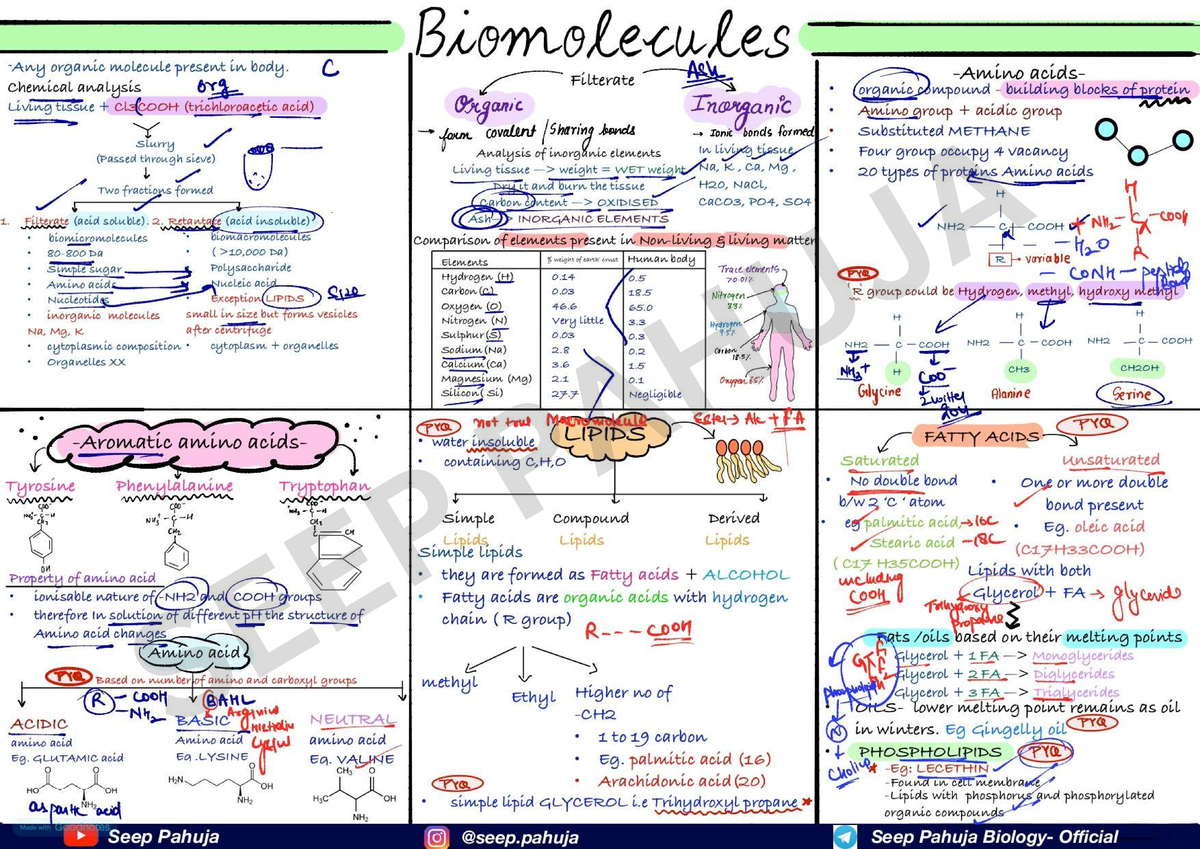 Biomolecules
-Any organic molecule present in body.
C
Chemical analysis
org
Living tissue + Cl3COOH (trichloroacetic acid)
Slurry
(Passed through sieve)
Two fractions formed
1. Filterate (acid soluble). 2. Retantate (acid insoluble)
• biomicromolecules
• biomacromolecules
• 80-800 Da
(>10,000 Da)
• Simple sugar
• Polysaccharide
• Amino acids
• Nucleic acid
• Nucleotides
• Exception LIPIDS
Size
• inorganic molecules
small in size but forms vesicles
Na, Mg, K
after centrifuge
• cytoplasmic composition
• cytoplasm + organelles
• Organelles XX
Filterate
Ash
Organic
Inorganic
→ form covalent / Sharing bonds
→ Ionic bonds formed
Analysis of inorganic elements
In living tissue
Living tissue —> weight = WET weight
Na, K, Ca, Mg,
Dry it and burn the tissue
H2O, NaCl,
Carbon content —> OXIDISED
CaCO3, PO4, SO4
Ash > INORGANIC ELEMENTS
Comparison of elements present in Non-living & living matter
Elements % weight of earth' crust Human body
Hydrogen (H) 0.14 0.5
Carbon (C) 0.03 18.5
Oxygen (O) 46.6 65.0
Nitrogen (N) Very little 3.3
Sulphur (S) 0.03 0.3
Sodium (Na) 2.8 0.2
Calcium (Ca) 3.6 1.5
Magnesium (Mg) 2.1 0.1
Silicon (Si) 27.7 Negligible
Trace elements
Nitrogen
Hydrogen
9.5%
Carbon
18.5%
Oxygen 65%
-Amino acids-
• organic compound - building blocks of protein
• Amino group + acidic group
• Substituted METHANE
• Four group occupy 4 vacancy
• 20 types of proteins Amino acids
H
NH2 — C — COOH
α
R → variable
H
NH2 — C — COOH
α
R
- H2O
- CONH - peptide bond
PYQ
'R' group could be Hydrogen, methyl, hydroxy methyl
H H H
NH2 — C — COOH NH2 — C — COOH NH2 — C — COOH
H CH3 CH2OH
NH3+ COO-
Glycine Alanine Serine
Zwitter
ion
-Aromatic amino acids-
Tyrosine Phenylalanine Tryptophan
OH
Property of amino acid
• ionisable nature of -NH2 and COOH groups
• therefore In solution of different pH the structure of
Amino acid changes
Amino acid
PYQ Based on number of amino and carboxyl groups
R - COOH
- NH2
BAHL
Arginine
Histidine
Lysine
ACIDIC BASIC NEUTRAL
amino acid Amino acid amino acid
Eg. GLUTAMIC acid Eg. LYSINE Eg. VALINE
O O
HO OH
NH2
O
H2N OH
NH2
CH3 O
H3C OH
NH2
aspartic acid
PYQ not true Macromolecule
LIPIDS
Ester → Alc + F.A
• water insoluble
• containing C,H,O
Simple Compound Derived
Lipids Lipids Lipids
Simple lipids
• they are formed as Fatty acids + ALCOHOL
• Fatty acids are organic acids with hydrogen
chain ( R group)
R --- COOH
methyl
Ethyl
Higher no of
-CH2
• 1 to 19 carbon
• Eg. palmitic acid (16)
• Arachidonic acid (20)
PYQ
• simple lipid GLYCEROL i.e Trihydroxyl propane *
FATTY ACIDS
PYQ
Saturated Unsaturated
• No double bond
b/w 2 'C' atom
• One or more double
bond present
• eg palmitic acid, → 16C
Stearic acid - 18C
(C17 H35COOH)
• Eg. oleic acid
(C17H33COOH)
including
COOH
Lipids with both
Glycerol + FA → glycerides
Trihydroxy
propane
Fats /oils based on their melting points
Glycerol + 1 FA —> Monoglycerides
Glycerol + 2 FA —> Diglycerides
Glycerol + 3 FA —> Triglycerides
OILS- lower melting point remains as oil
in winters. Eg Gingelly oil
PYQ
• PHOSPHOLIPIDS
PYQ
Choline
-Eg: LECETHIN
-Found in cell membrane
-Lipids with phosphorus and phosphorylated
organic compounds
SEEP PAHUJA
Made with Goodnotes
Seep Pahuja
@seep.pahuja
Seep Pahuja Biology- Official